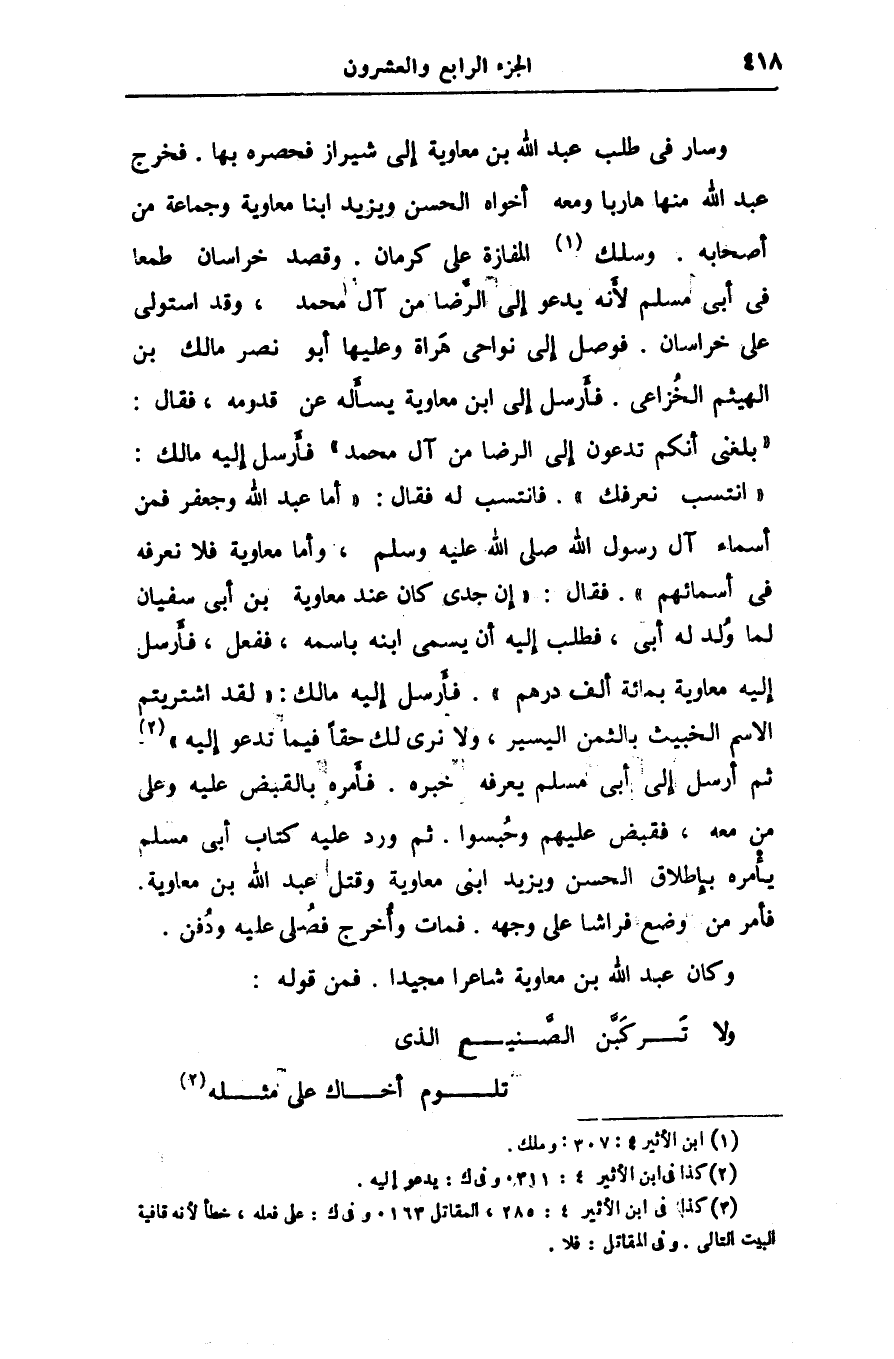 ٤١٨
الجزء الرابع والعشرون
وسار فى طلب عبد الله بن معاوية إلى شيراز فحصره بها . فخرج
عبد الله منها هاربا ومعه أخواه الحسن ويزيد ابنا معاوية وجماعة من
أصحابه . وسلك (١) المفازة على كرمان . وقصد خراسان طمعا
فى أبى مسلم لأنه يدعو إلى الرِّضا من آل محمد ، وقد استولى
على خراسان . فوصل إلى نواحى هَراة وعليها أبو نصر مالك بن
الهيثم الخُزاعى . فأَرسل إلى ابن معاوية يسأَله عن قدومه ، فقال :
« بلغنى أنكم تدعون إلى الرضا من آل محمد » فأَرسل إليه مالك :
« انتسب نعرفك » . فانتسب له فقال : « أما عبد الله وجعفر فمن
أسماء آل رسول الله صلى الله عليه وسلم ، وأما معاوية فلا نعرفه
فى أسمائهم » . فقال : « إن جدى كان عند معاوية بن أبى سفيان
لما وُلد له أبى ، فطلب إليه أن يسمى ابنه باسمه ، ففعل ، فأَرسل
إليه معاوية بمائة ألف درهم » . فأَرسل إليه مالك : « لقد اشتريتم
الاسم الخبيث بالثمن اليسير ، ولا نرى لك حقاً فيما تدعو إليه » (٢).
ثم أرسل إلى أبى مسلم يعرفه خبره . فأَمره بالقبض عليه وعلى
من معه ، فقبض عليهم وحُبسوا . ثم ورد عليه كتاب أبى مسلم
يأْمره بإطلاق الحسن ويزيد ابنى معاوية وقتل عبد الله بن معاوية.
فأمر من وضع فراشا على وجهه . فمات وأُخرج فصُلى عليه ودُفن .
وكان عبد الله بن معاوية شاعرا مجيدا . فمن قوله :
ولا تَـــركَبَّن الصَّـنيـــع الذى
تلــــوم أخـــاك على مثـــله (٢)
(١) ابن الأثير ٤ : ٣٠٧ : وملك .
(٢) كذا فى ابن الأثير ٤ : ٣١١. و فى ك : يدعو إليه .
(٣) كذا فى ابن الأثير ٤ : ٢٨٥ ، المقاتل ١٦٣ . و فى ك : على فعله ، خطأ لأنه قافية
البيت التالى . وفى المقاتل : فلا .